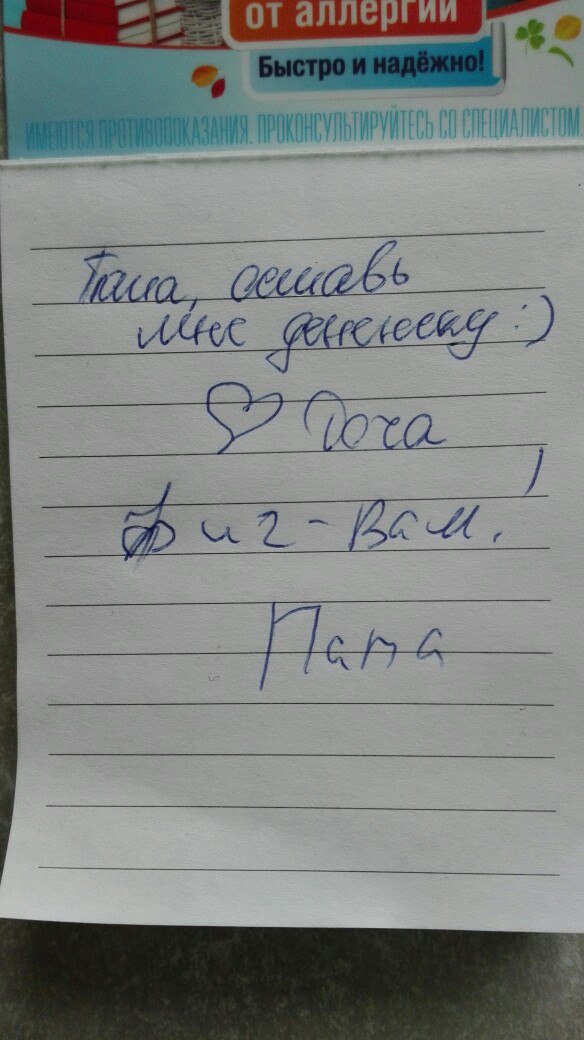 от аллергии
Быстро и надёжно!
ИМЕЮТСЯ ПРОТИВОПОКАЗАНИЯ. ПРОКОНСУЛЬТИРУЙТЕСЬ СО СПЕЦИАЛИСТОМ
Папа, оставь
мне денежку :)
♡ Доча
Фиг-вам!
Папа